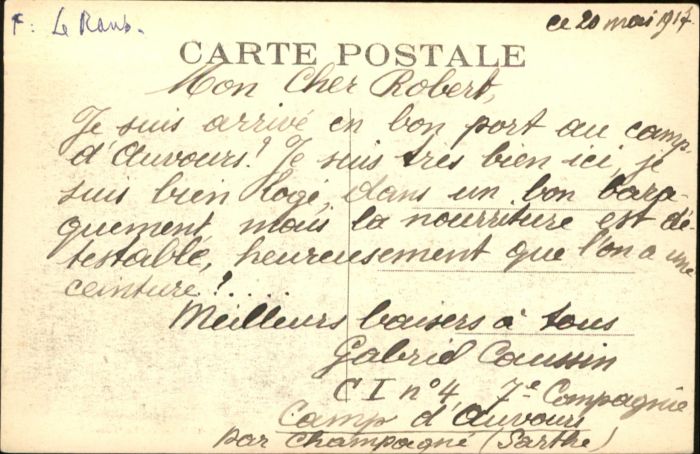 F. Le Roux.
ce 20 mai 1917
CARTE POSTALE
Mon Cher Robert,
Je suis arrivé en bon port au camp
d'Auvours! Je suis très bien ici, je
suis bien logé, dans un bon bara-
quement, mais la nourriture est dé-
testable, heureusement que l'on a une
ceinture!....
Meilleurs baisers à tous
Gabriel Caussin
C I n°4, 7e Compagnie
Camp d'Auvours
par Champagné (Sarthe)